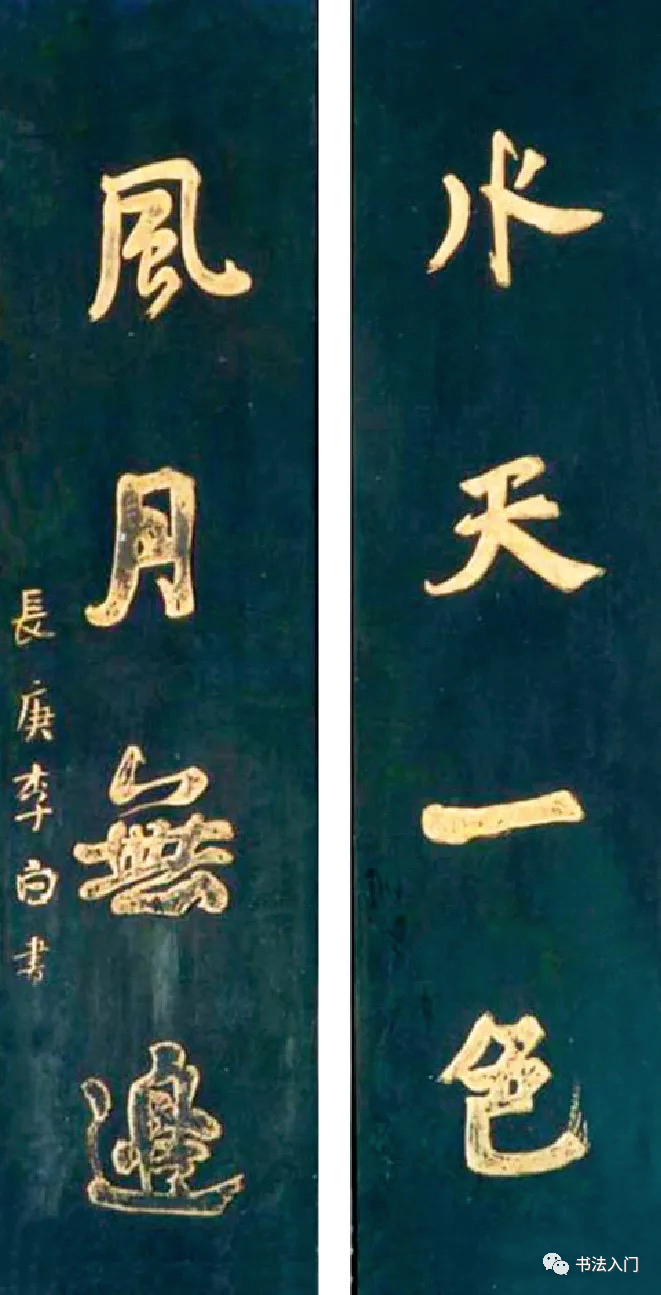 水天一色
風月無邊
長庚李白書
书法入门